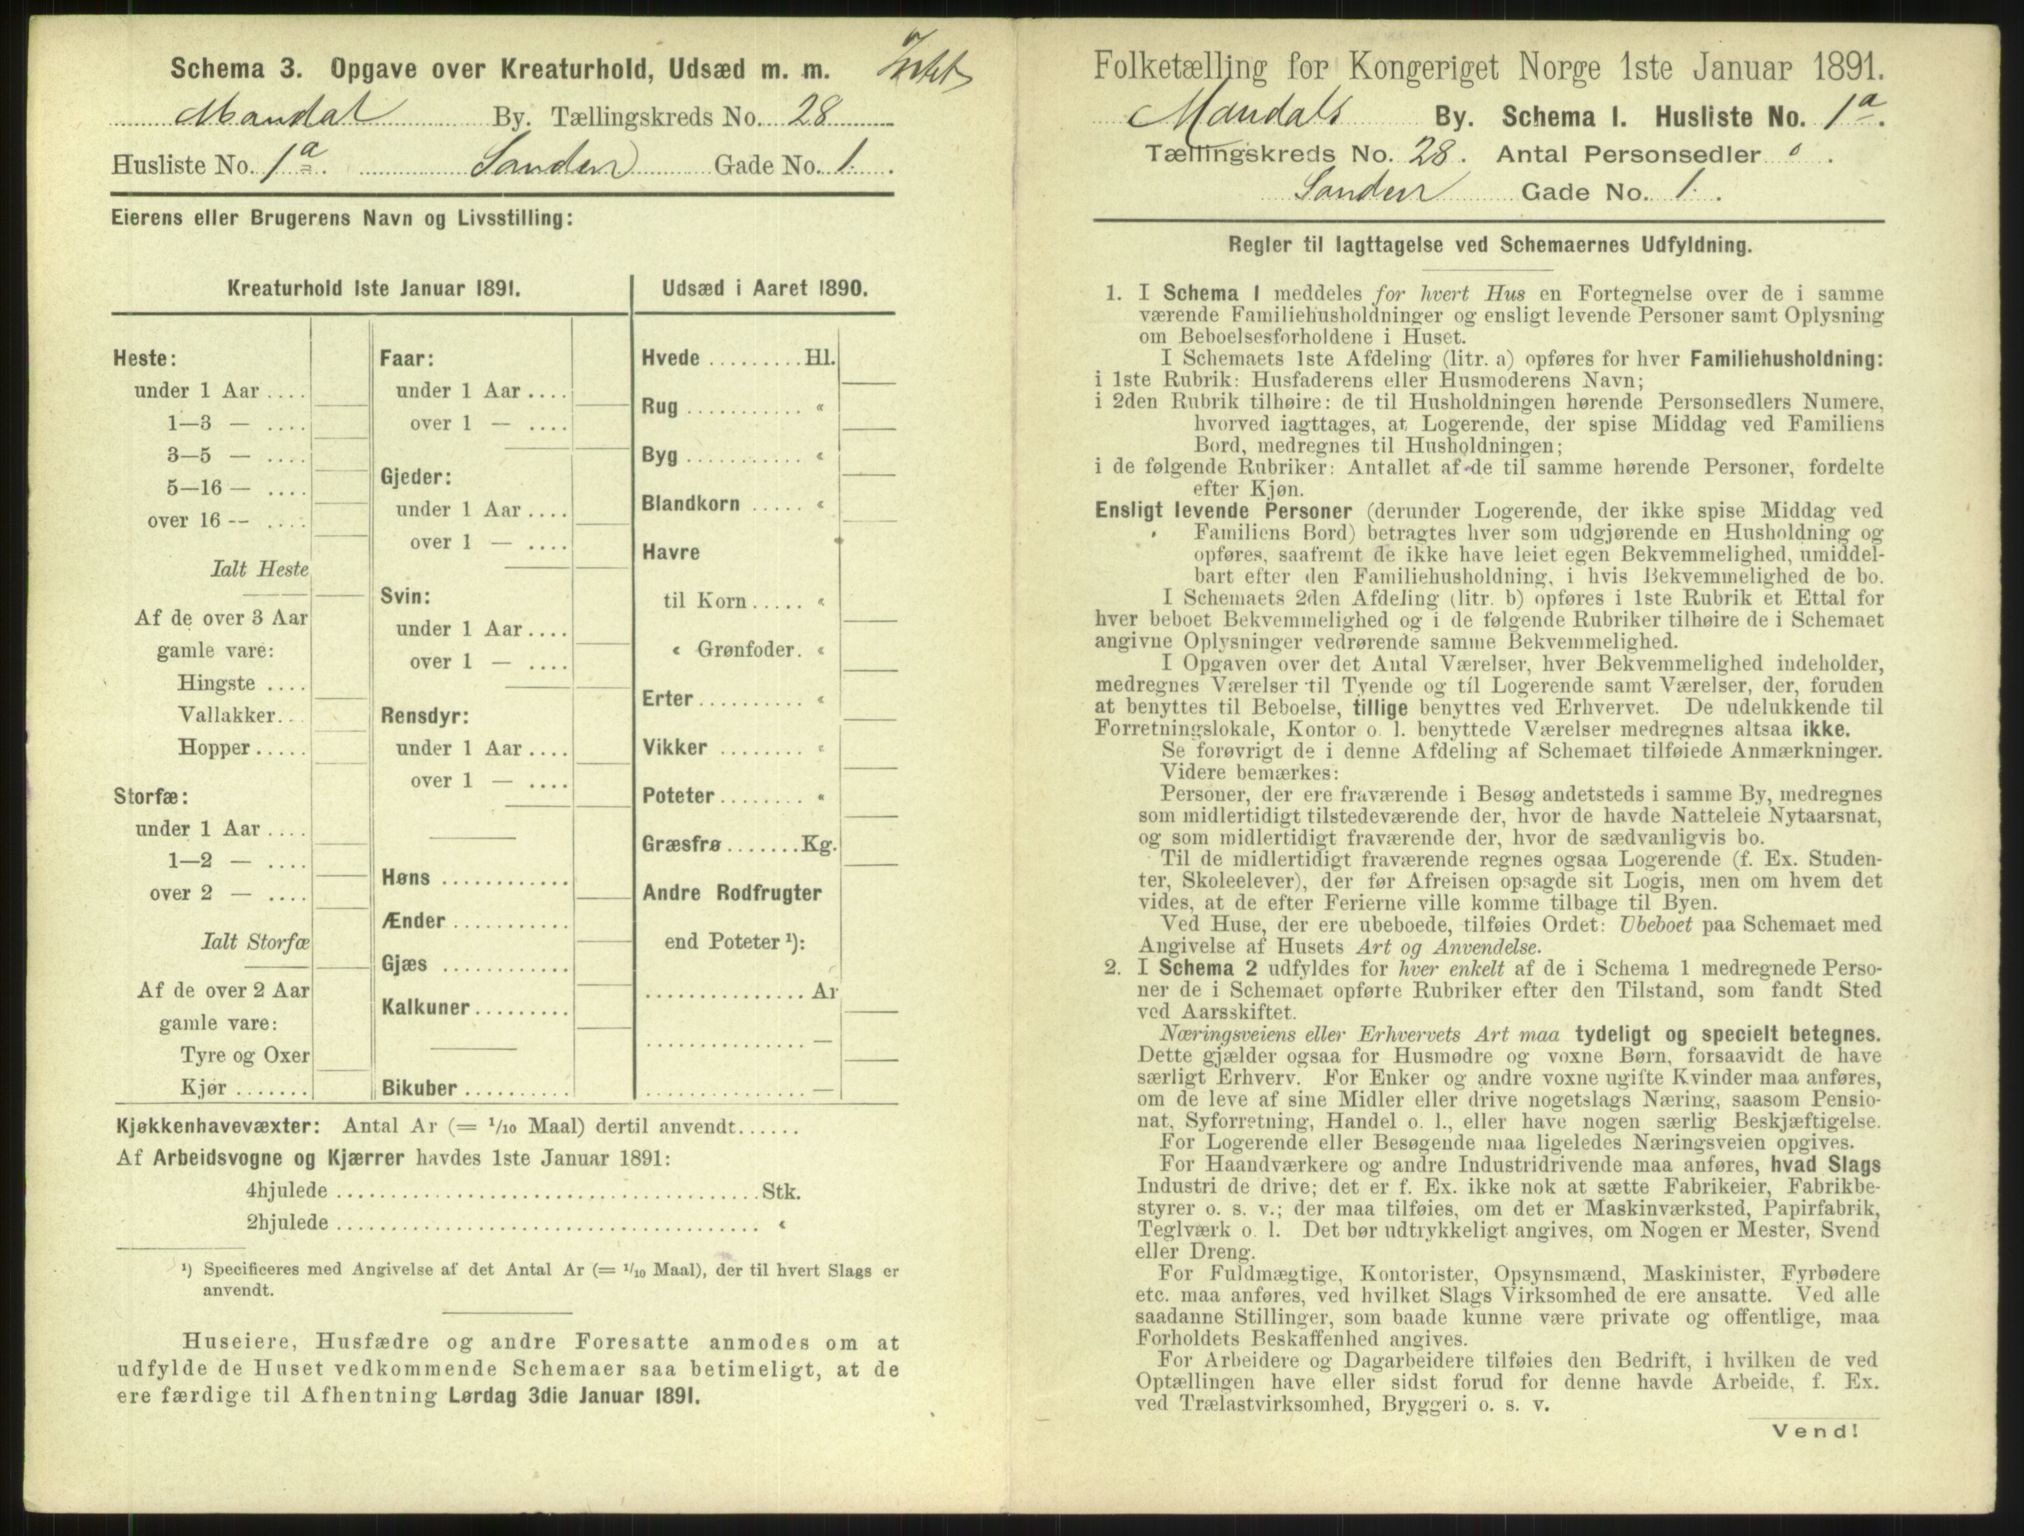 Schema 3. Opgave over Kreaturhold, Udsæd m. m. Intet
Mandal By. Tællingskreds No. 28
Husliste No. 1a. Sanden Gade No. 1.
Eierens eller Brugerens Navn og Livsstilling:
Kreaturhold 1ste Januar 1891.
Heste:
under 1 Aar ....
1—3 — ....
3—5 — ....
5—16 — ....
over 16 -- ....
Ialt Heste
Af de over 3 Aar
gamle vare:
Hingste ....
Vallakker..
Hopper.....
Storfæ:
under 1 Aar ....
1—2 — ....
over 2 — ....
Ialt Storfæ
Af de over 2 Aar
gamle vare:
Tyre og Oxer
Kjør .......
Faar:
under 1 Aar ....
over 1 — ....
Gjeder:
under 1 Aar ....
over 1 — ....
Svin:
under 1 Aar ....
over 1 — ....
Rensdyr:
under 1 Aar ....
over 1 — ....
Høns ............
Ænder ...........
Gjæs ............
Kalkuner.........
Bikuber ..........
Udsæd i Aaret 1890.
Hvede .........Hl.
Rug ........... «
Byg ........... «
Blandkorn ..... «
Havre
til Korn..... «
« Grønfoder. «
Erter.......... «
Vikker ........ «
Poteter........ «
Græsfrø.......Kg.
Andre Rodfrugter
end Poteter ¹):
............... Ar
............... —
............... —
Kjøkkenhavevæxter: Antal Ar (= 1/10 Maal) dertil anvendt......
Af Arbeidsvogne og Kjærrer havdes 1ste Januar 1891:
4hjulede ........................................Stk.
2hjulede ........................................ «
¹) Specificeres med Angivelse af det Antal Ar (= 1/10 Maal), der til hvert Slags er
anvendt.
Huseiere, Husfædre og andre Foresatte anmodes om at
udfylde de Huset vedkommende Schemaer saa betimeligt, at de
ere færdige til Afhentning Lørdag 3die Januar 1891.
Folketælling for Kongeriget Norge 1ste Januar 1891.
Mandals By. Schema I. Husliste No. 1a.
Tællingskreds No. 28. Antal Personsedler 0.
Sanden Gade No. 1.
Regler til Iagttagelse ved Schemaernes Udfyldning.
1. I Schema 1 meddeles for hvert Hus en Fortegnelse over de i samme
værende Familiehusholdninger og ensligt levende Personer samt Oplysning
om Beboelsesforholdene i Huset.
I Schemaets 1ste Afdeling (litr. a) opføres for hver Familiehusholdning:
i 1ste Rubrik: Husfaderens eller Husmoderens Navn;
i 2den Rubrik tilhøire: de til Husholdningen hørende Personsedlers Numere,
hvorved iagttages, at Logerende, der spise Middag ved Familiens
Bord, medregnes til Husholdningen;
i de følgende Rubriker: Antallet af de til samme hørende Personer, fordelte
efter Kjøn.
Ensligt levende Personer (derunder Logerende, der ikke spise Middag ved
Familiens Bord) betragtes hver som udgjørende en Husholdning og
opføres, saafremt de ikke have leiet egen Bekvemmelighed, umiddel-
bart efter den Familiehusholdning, i hvis Bekvemmelighed de bo.
I Schemaets 2den Afdeling (litr. b) opføres i 1ste Rubrik et Ettal for
hver beboet Bekvemmelighed og i de følgende Rubriker tilhøire de i Schemaet
angivne Oplysninger vedrørende samme Bekvemmelighed.
I Opgaven over det Antal Værelser, hver Bekvemmelighed indeholder,
medregnes Værelser til Tyende og til Logerende samt Værelser, der, foruden
at benyttes til Beboelse, tillige benyttes ved Erhvervet. De udelukkende til
Forretningslokale, Kontor o. l. benyttede Værelser medregnes altsaa ikke.
Se forøvrigt de i denne Afdeling af Schemaet tilføiede Anmærkninger.
Videre bemærkes:
Personer, der ere fraværende i Besøg andetsteds i samme By, medregnes
som midlertidigt tilstedeværende der, hvor de havde Natteleie Nytaarsnat,
og som midlertidigt fraværende der, hvor de sædvanligvis bo.
Til de midlertidigt fraværende regnes ogsaa Logerende (f. Ex. Studen-
ter, Skoleelever), der før Afreisen opsagde sit Logis, men om hvem det
vides, at de efter Ferierne ville komme tilbage til Byen.
Ved Huse, der ere ubeboede, tilføies Ordet: Ubeboet paa Schemaet med
Angivelse af Husets Art og Anvendelse.
2. I Schema 2 udfyldes for hver enkelt af de i Schema 1 medregnede Perso-
ner de i Schemaet opførte Rubriker efter den Tilstand, som fandt Sted
ved Aarsskiftet.
Næringsveiens eller Erhvervets Art maa tydeligt og specielt betegnes.
Dette gjælder ogsaa for Husmødre og voxne Børn, forsaavidt de have
særligt Erhverv. For Enker og andre voxne ugifte Kvinder maa anføres,
om de leve af sine Midler eller drive nogetslags Næring, saasom Pensio-
nat, Syforretning, Handel o. l., eller have nogen særlig Beskjæftigelse.
For Logerende eller Besøgende maa ligeledes Næringsveien opgives.
For Haandværkere og andre Industridrivende maa anføres, hvad Slags
Industri de drive; det er f. Ex. ikke nok at sætte Fabrikeier, Fabrikbe-
styrer o. s. v.; der maa tilføies, om det er Maskinværksted, Papirfabrik,
Teglværk o. l. Det bør udtrykkeligt angives, om Nogen er Mester, Svend
eller Dreng.
For Fuldmægtige, Kontorister, Opsynsmænd, Maskinister, Fyrbødere
etc. maa anføres, ved hvilket Slags Virksomhed de ere ansatte. Ved alle
saadanne Stillinger, som baade kunne være private og offentlige, maa
Forholdets Beskaffenhed angives.
For Arbeidere og Dagarbeidere tilføies den Bedrift, i hvilken de ved
Optællingen have eller sidst forud for denne havde Arbeide, f. Ex.
ved Trælastvirksomhed, Bryggeri o. s. v.
Vend!